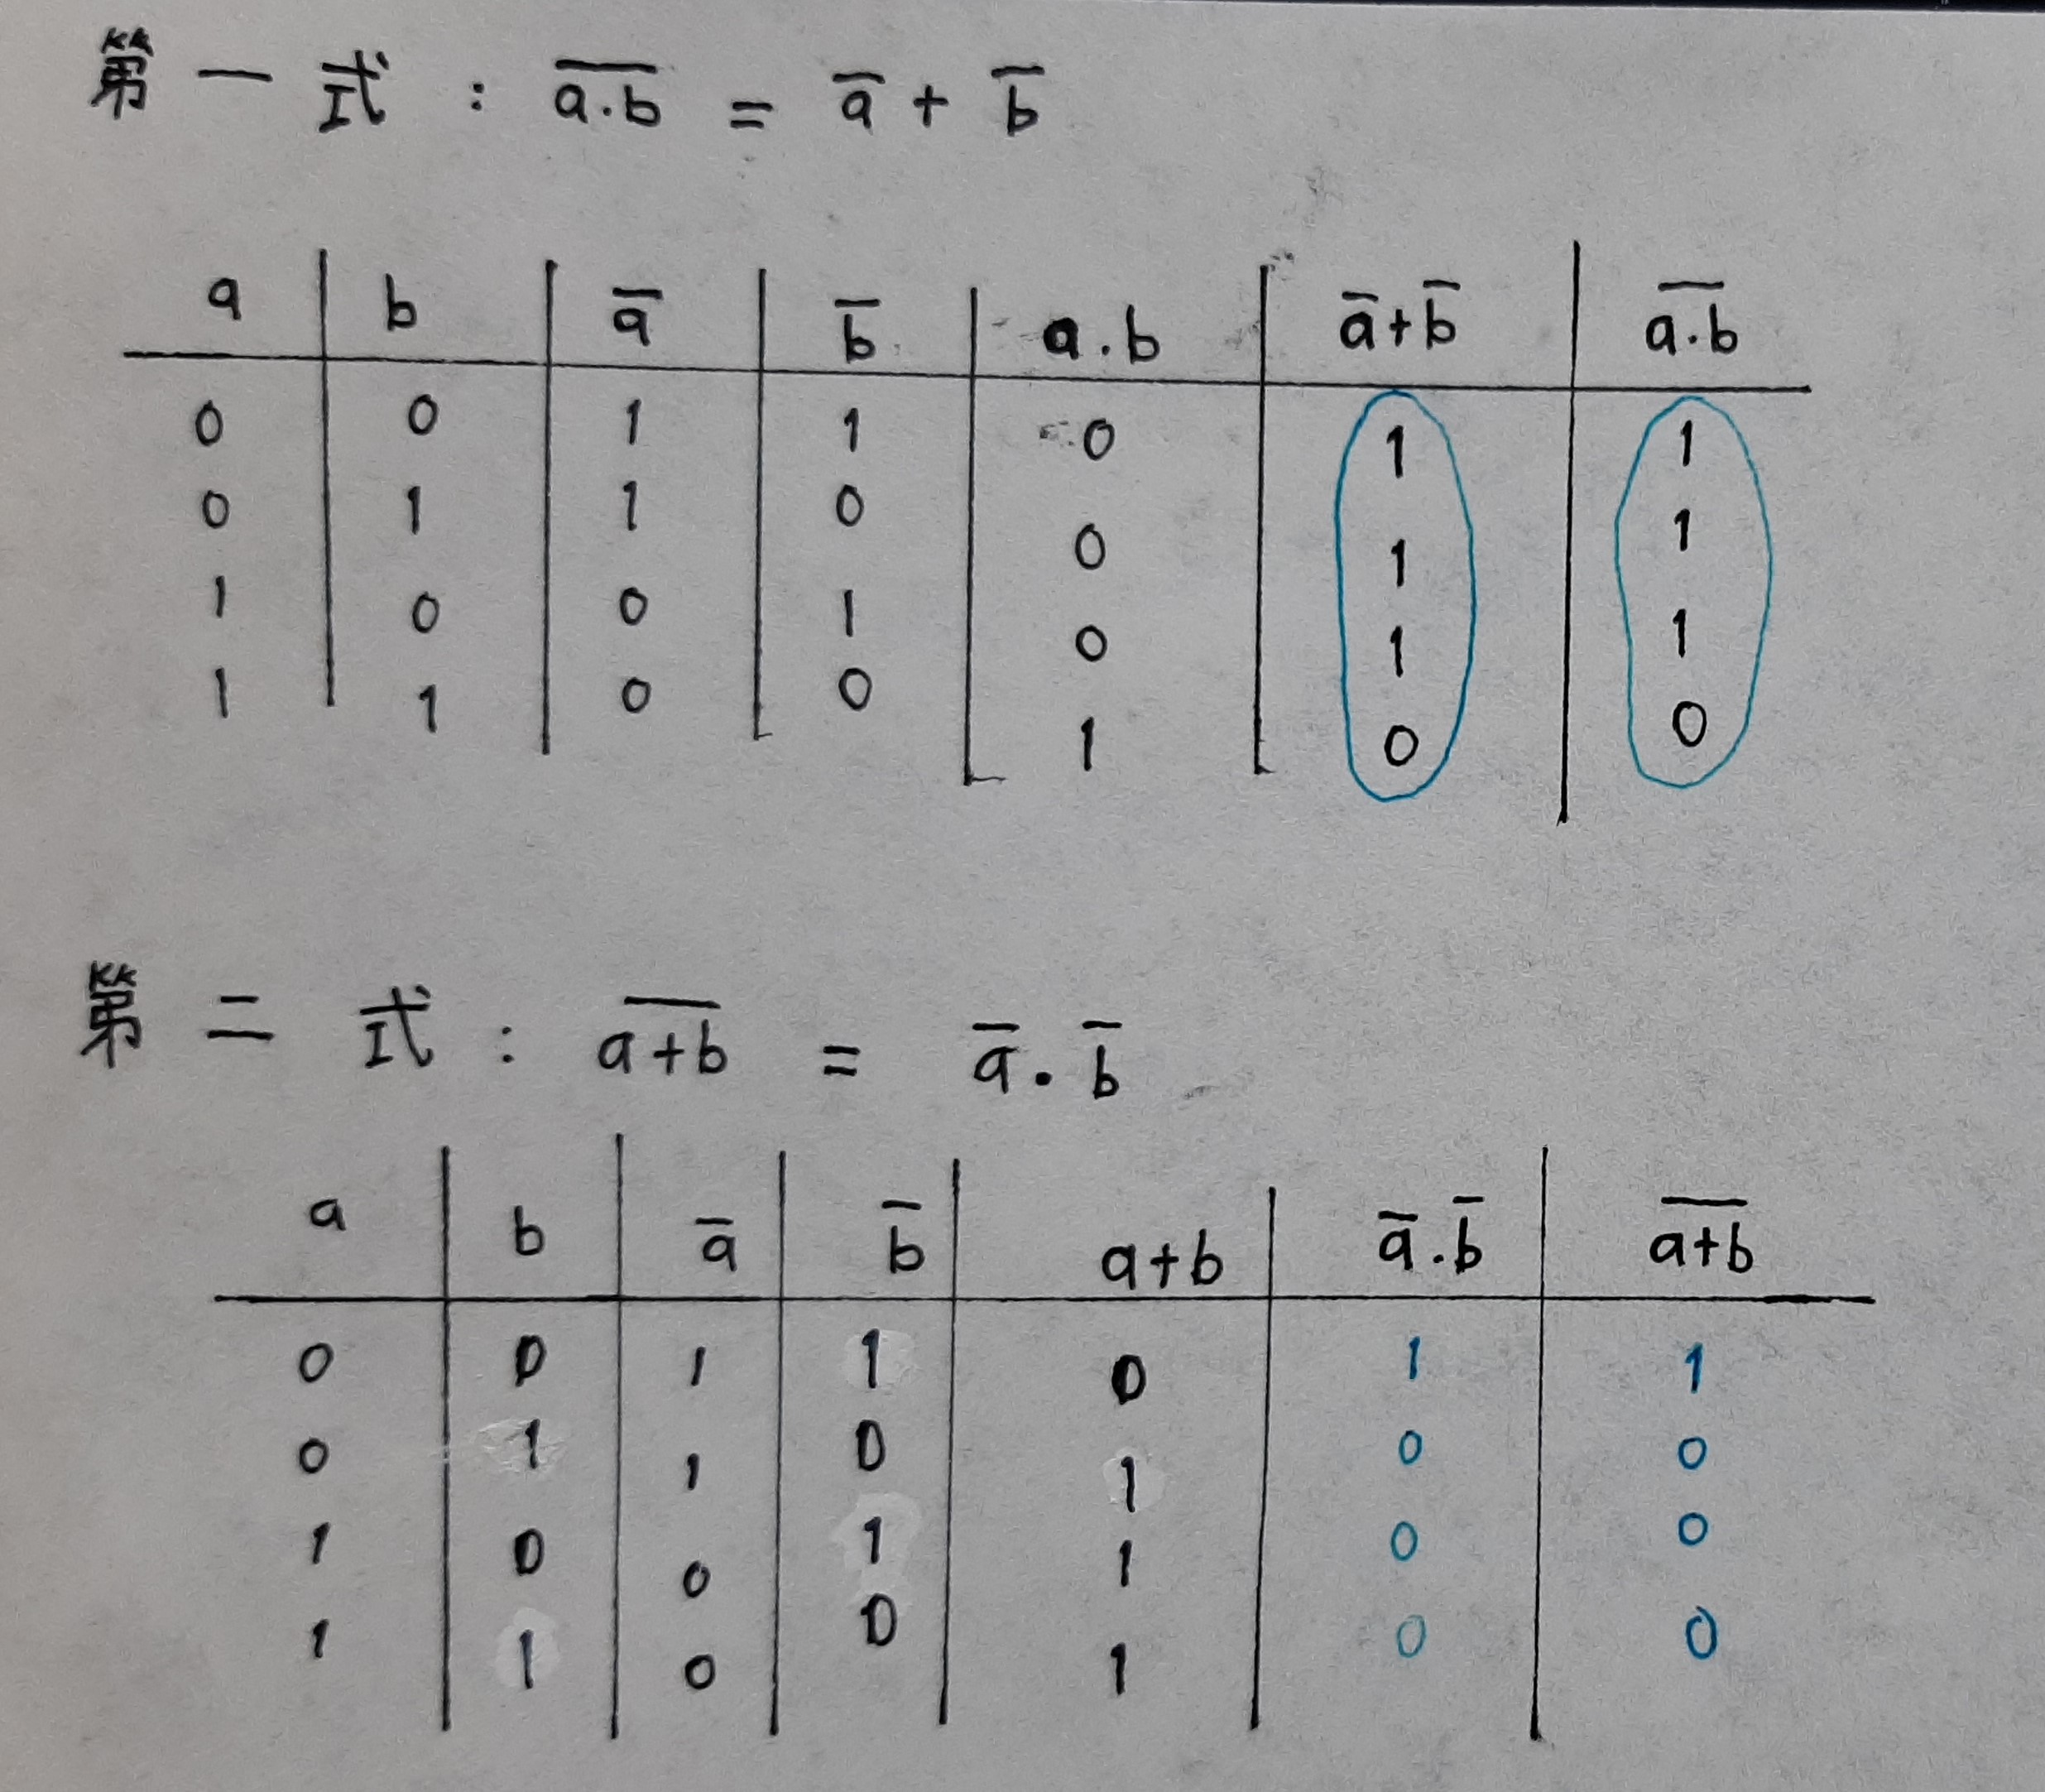 第一式 : a̅.̅b̅ = a̅ + b̅
a b a̅ b̅ a.b a̅+b̅ a̅.̅b̅
0 0 1 1 0 1 1
0 1 1 0 0 1 1
1 0 0 1 0 1 1
1 1 0 0 1 0 0
第二式 : a̅+̅b̅ = a̅.b̅
a b a̅ b̅ a+b a̅.b̅ a̅+̅b̅
0 0 1 1 0 1 1
0 1 1 0 1 0 0
1 0 0 1 1 0 0
1 1 0 0 1 0 0